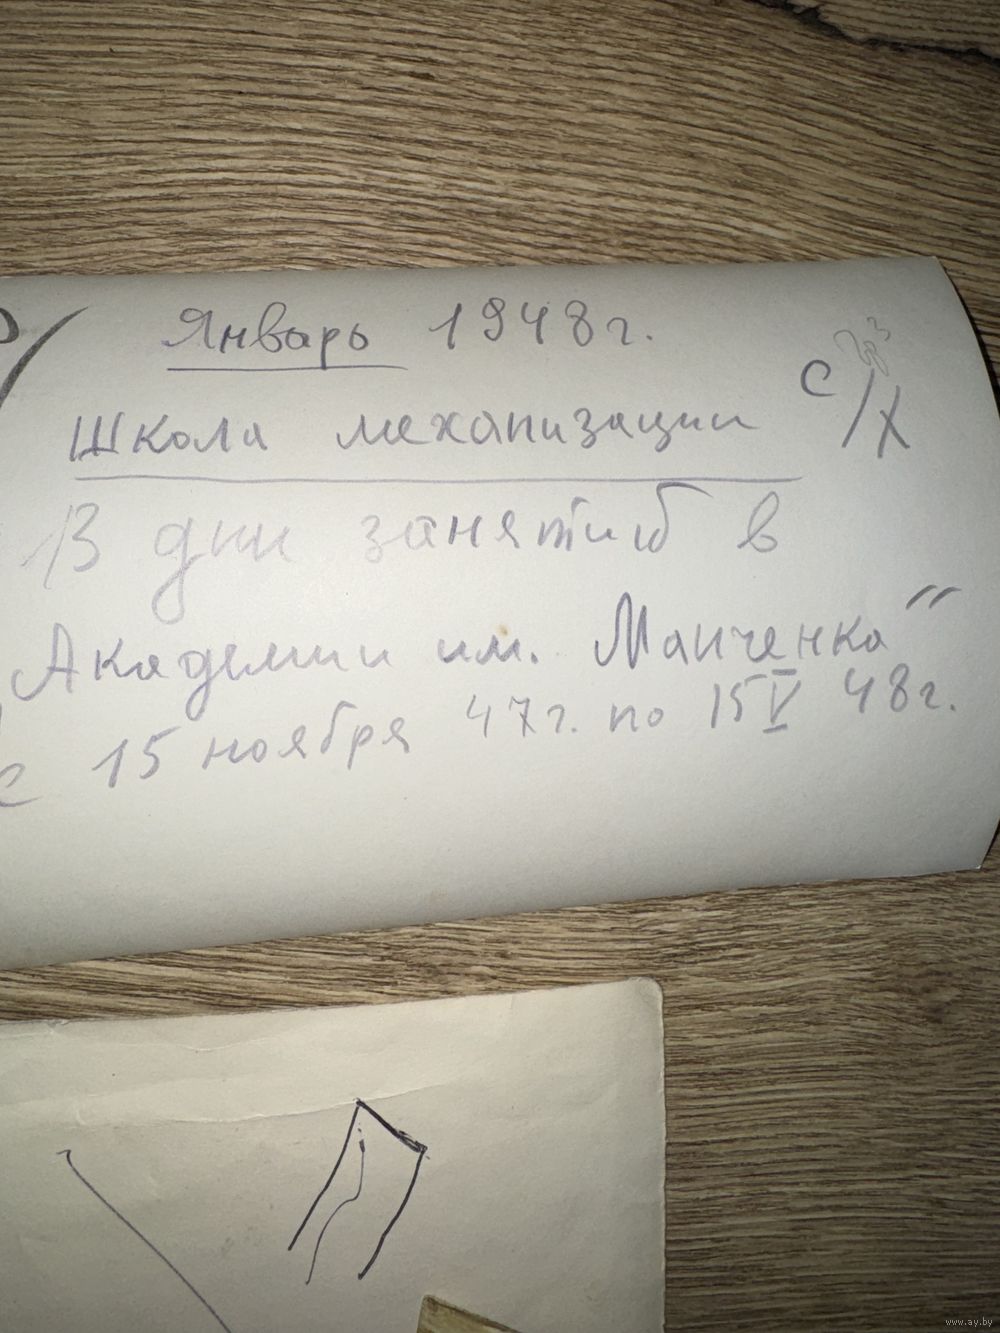 Январь 1948 г.
Школа механизации с/х
В дни занятий в
Академии им. Манченка"
с 15 ноября 47 г. по 15 V 48 г.
www.ay.by